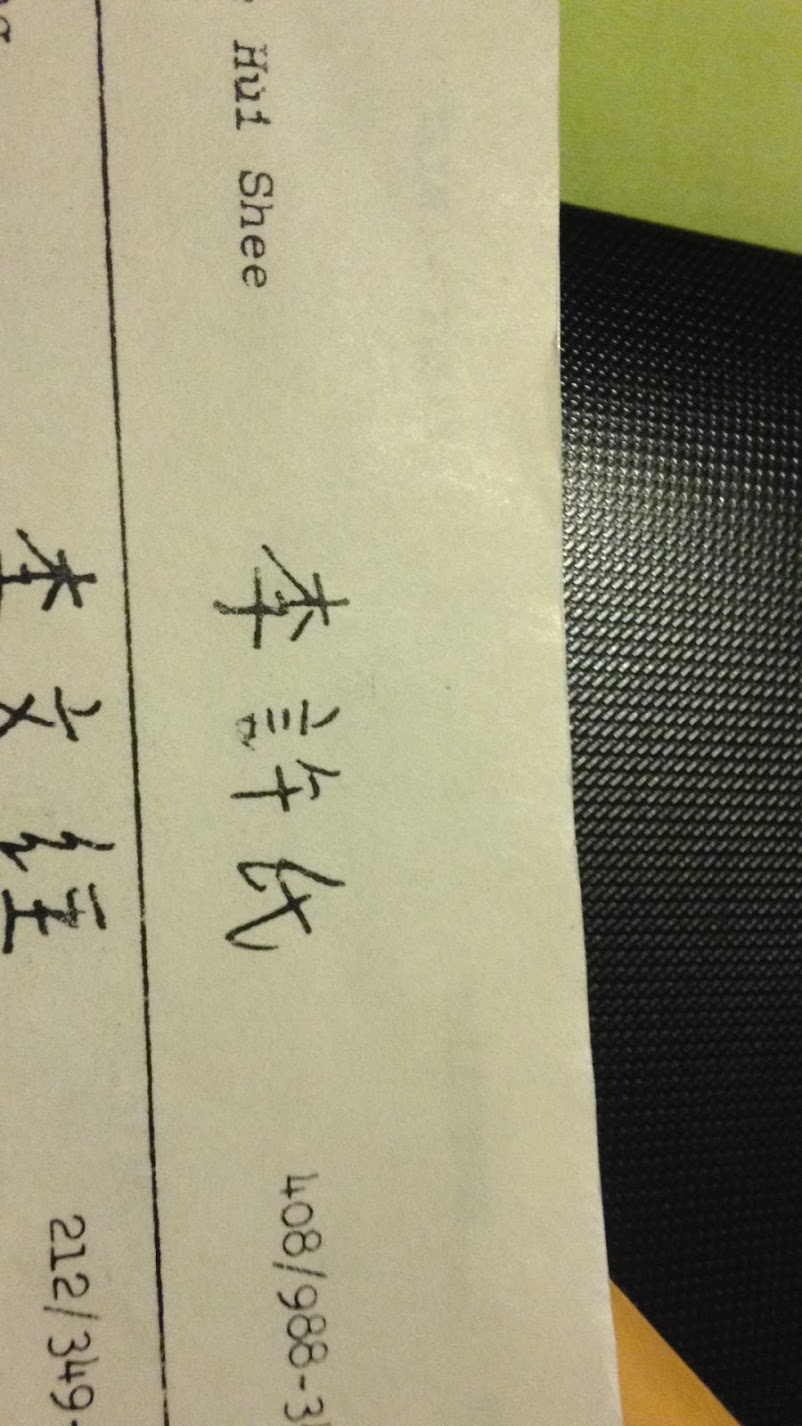 Hui Shee 李許氏 408/988-3
李文經 212/349-